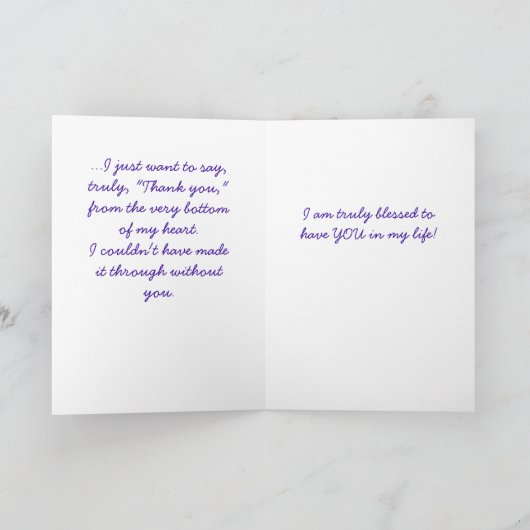 ...I just want to say,
truly, "Thank you,"
from the very bottom
of my heart.
I couldn't have made
it through without
you.
I am truly blessed to
have YOU in my life!